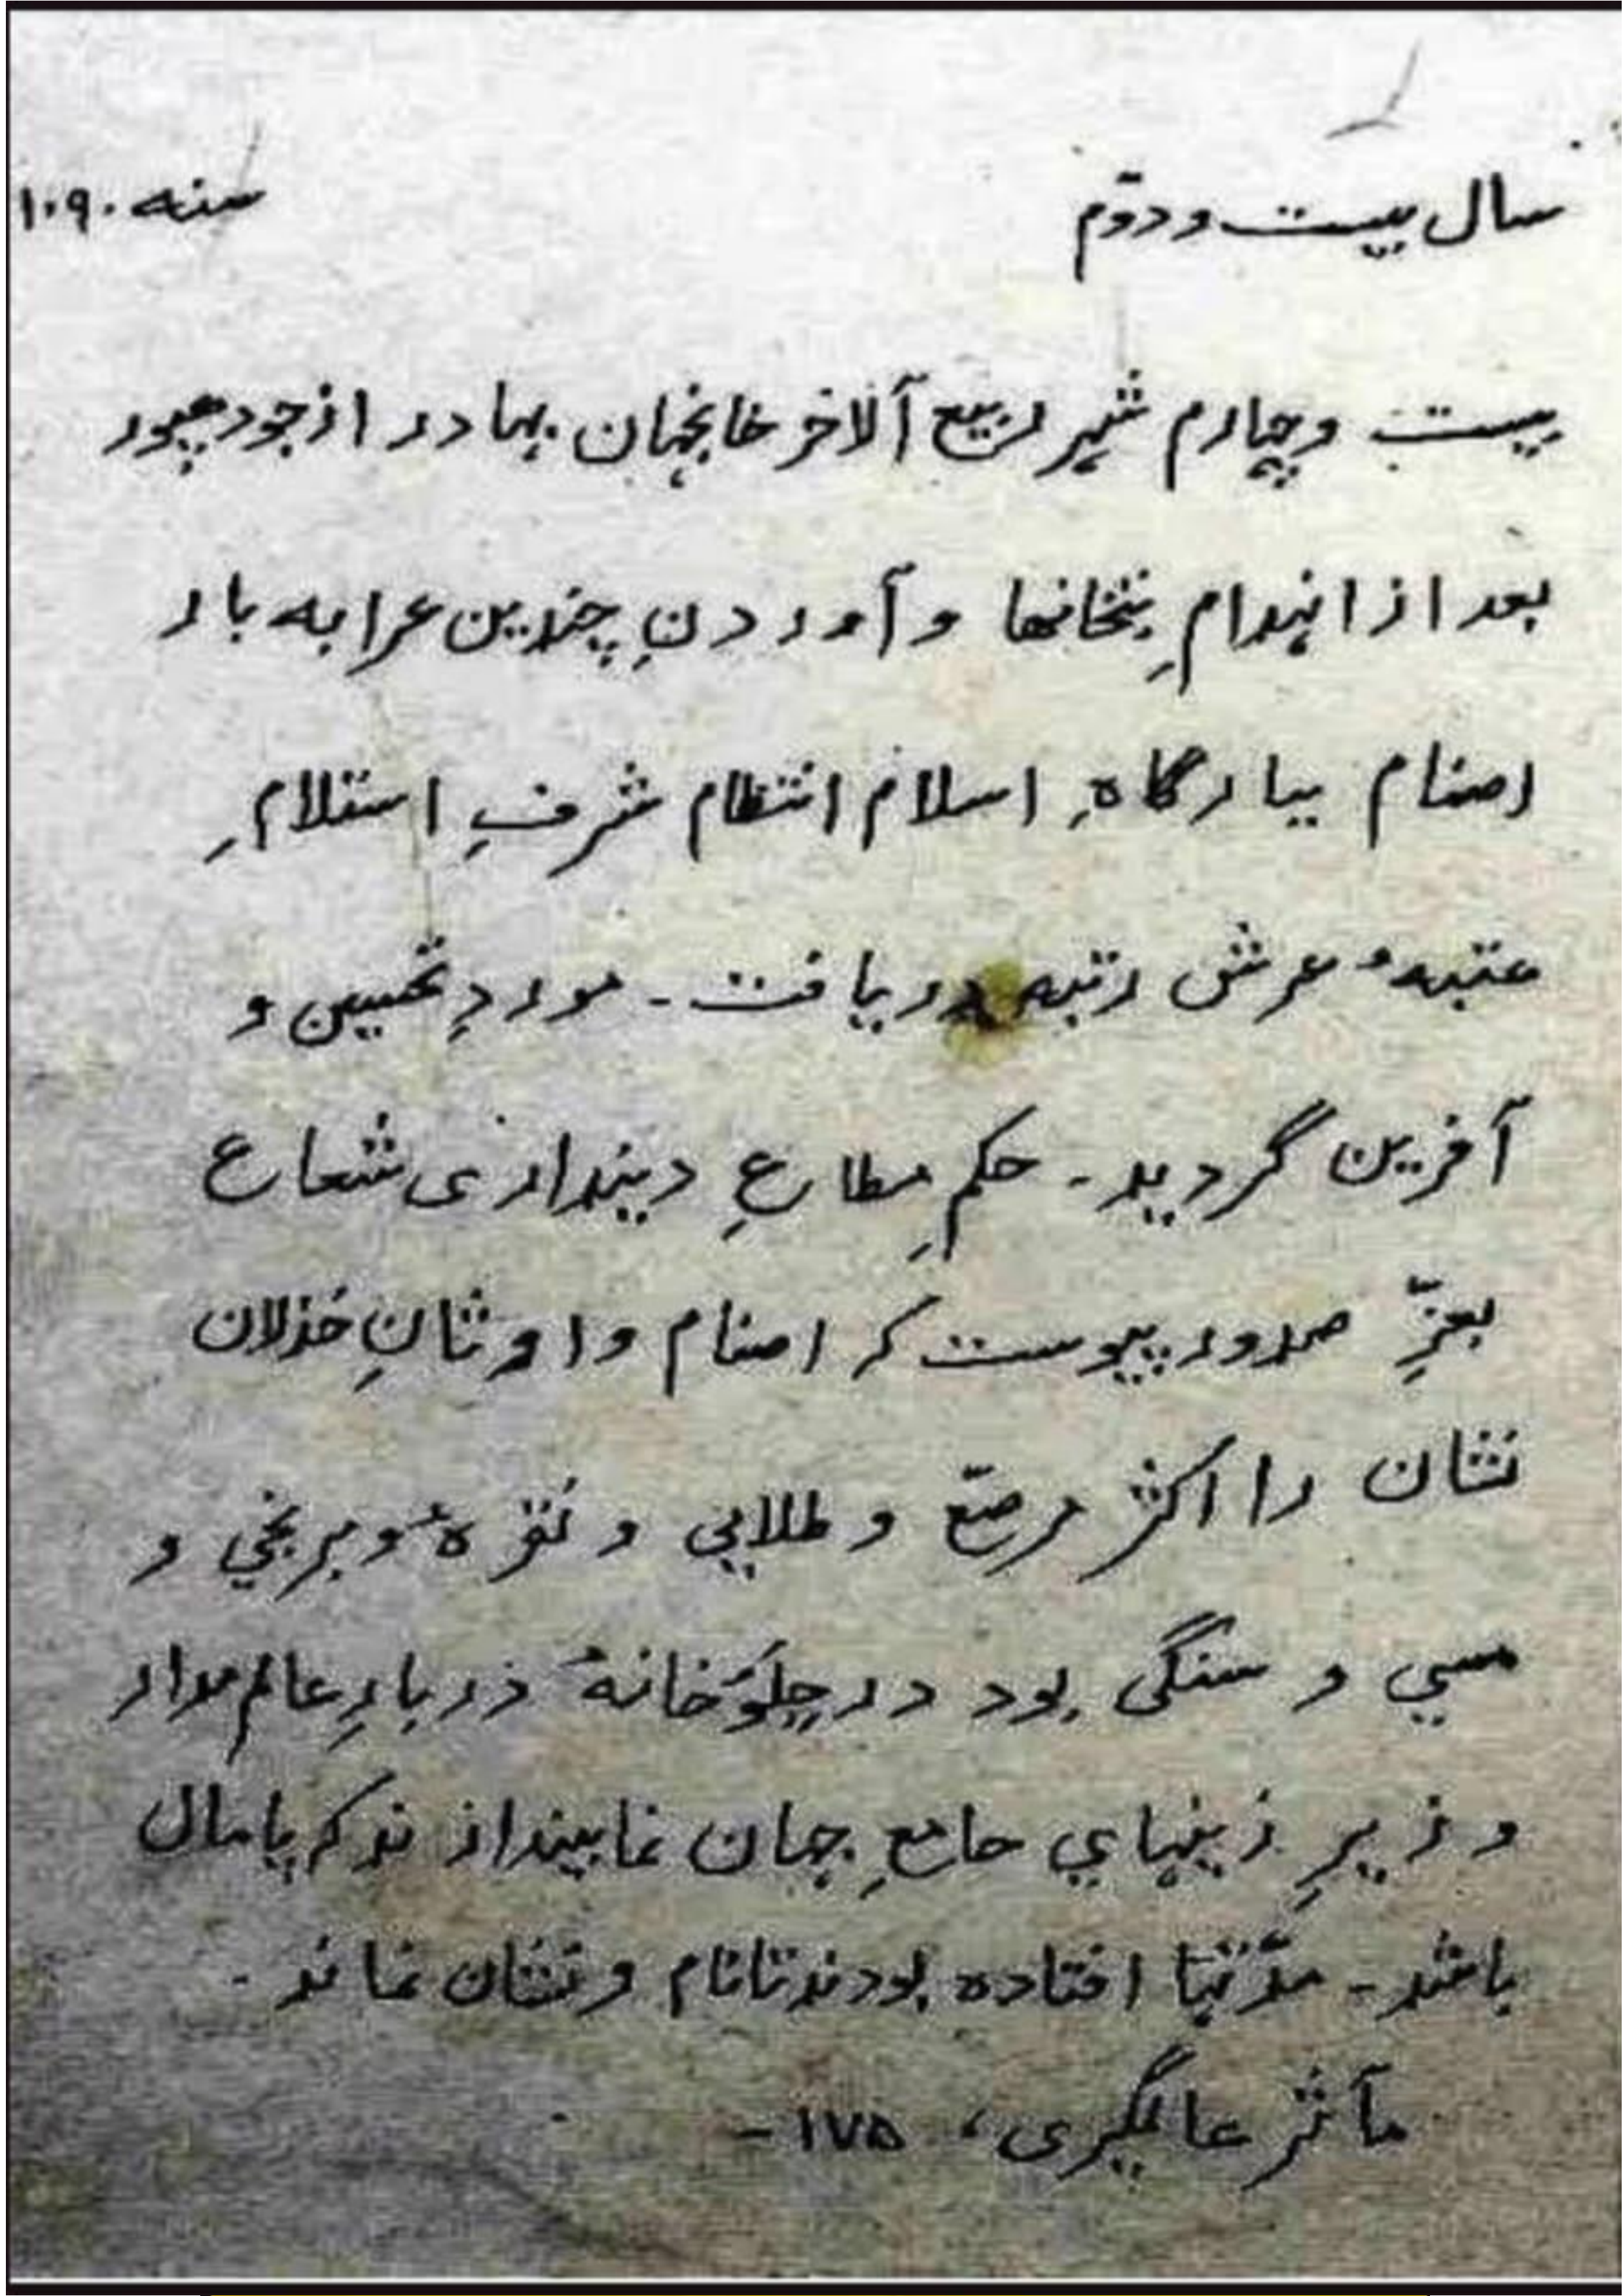 سال بیست و دوّم سنه ۱۰۹۰
بیست و چهارم شهر ربیع آلاخر خانجهان بهادر از جودهپور
بعد از انهدامِ بتخانها و آوردنِ چندین عرابه بار
اصنام ببارگاهِ اسلام انتظام شرفِ استلامِ
عتبهٔ عرش رتبه دریافت - موردِ تحسین و
آفرین گردید - حکمِ مطاعِ دینداری شعاع
بعزِّ صدور پیوست که اصنام و اوثانِ خذلان
نشان را اکثر مرصّع و طلایی و نقرهٔ و برنجی و
مسی و سنگی بود در جلوَخانهٔ دربارِ عالم مدار
و زیرِ زینهای جامعِ جهان نما بیندازند که پامال
باشد - مدّتها افتاده بودند تا نام و نشان نماند -
مآثر عالمگیری، ۱۷۵ -